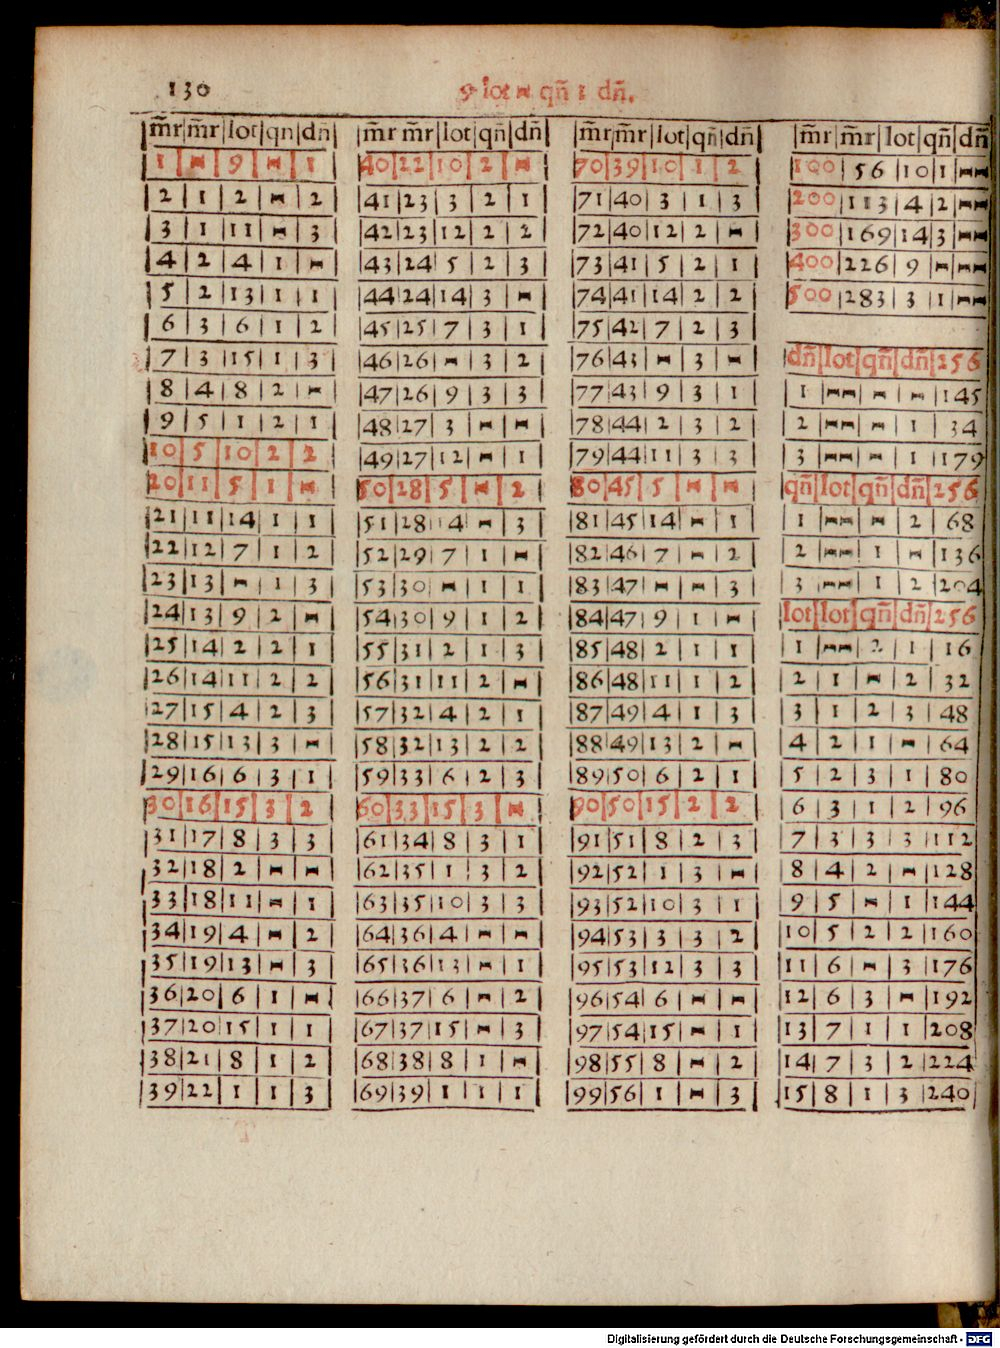 130
9 lot - qñ 1 dñ.
m̃r|m̃r|lot|qn|dñ|
1|-|9|-|1
2|1|2|-|2
3|1|11|-|3
4|2|4|1|-
5|2|13|1|1
6|3|6|1|2
7|3|15|1|3
8|4|8|2|-
9|5|1|2|1
10|5|10|2|2
20|11|5|1|-
21|11|14|1|1
22|12|7|1|2
23|13|-|1|3
24|13|9|2|-
25|14|2|2|1
26|14|11|2|2
27|15|4|2|3
28|15|13|3|-
29|16|6|3|1
30|16|15|3|2
31|17|8|3|3
32|18|2|-|-
33|18|11|-|1
34|19|4|-|2
35|19|13|-|3
36|20|6|1|-
37|20|15|1|1
38|21|8|1|2
39|22|1|1|3
m̃r m̃r|lot|qñ|dñ|
40|22|10|2|-
41|23|3|2|1
42|23|12|2|2
43|24|5|2|3
44|24|14|3|-
45|25|7|3|1
46|26|-|3|2
47|26|9|3|3
48|27|3|-|-
49|27|12|-|1
50|28|5|-|2
51|28|14|-|3
52|29|7|1|-
53|30|-|1|1
54|30|9|1|2
55|31|2|1|3
56|31|11|2|-
57|32|4|2|1
58|32|13|2|2
59|33|6|2|3
60|33|15|3|-
61|34|8|3|1
62|35|1|3|2
63|35|10|3|3
64|36|4|-|-
65|36|13|-|1
66|37|6|-|2
67|37|15|-|3
68|38|8|1|-
69|39|1|1|1
m̃r|m̃r|lot|qñ|dñ|
70|39|10|1|2
71|40|3|1|3
72|40|12|2|-
73|41|5|2|1
74|41|14|2|2
75|42|7|2|3
76|43|-|3|-
77|43|9|3|1
78|44|2|3|2
79|44|11|3|3
80|45|5|-|-
81|45|14|-|1
82|46|7|-|2
83|47|-|-|3
84|47|9|1|-
85|48|2|1|1
86|48|11|1|2
87|49|4|1|3
88|49|13|2|-
89|50|6|2|1
90|50|15|2|2
91|51|8|2|3
92|52|1|3|-
93|52|10|3|1
94|53|3|3|2
95|53|12|3|3
96|54|6|-|-
97|54|15|-|1
98|55|8|-|2
99|56|1|-|3
m̃r|m̃r|lot|qñ|dñ
100|56|10|1|--
200|113|4|2|--
300|169|14|3|--
400|226|9|-|--
500|283|3|1|--
dñ|lot|qñ|dñ|256
1|--|-|-|145
2|--|-|1|34
3|--|-|1|179
qñ|lot|qñ|dñ|256
1|--|-|2|68
2|--|1|-|136
3|--|1|2|204
lot|lot|qñ|dñ|256
1|--|2|1|16
2|1|-|2|32
3|1|2|3|48
4|2|1|-|64
5|2|3|1|80
6|3|1|2|96
7|3|3|3|112
8|4|2|-|128
9|5|-|1|144
10|5|2|2|160
11|6|-|3|176
12|6|3|-|192
13|7|1|1|208
14|7|3|2|224
15|8|1|3|240
Digitalisierung gefördert durch die Deutsche Forschungsgemeinschaft - DFG